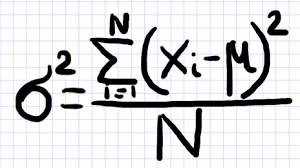 σ² = \frac{\sum_{i=1}^{N} (x_i - μ)²}{N}